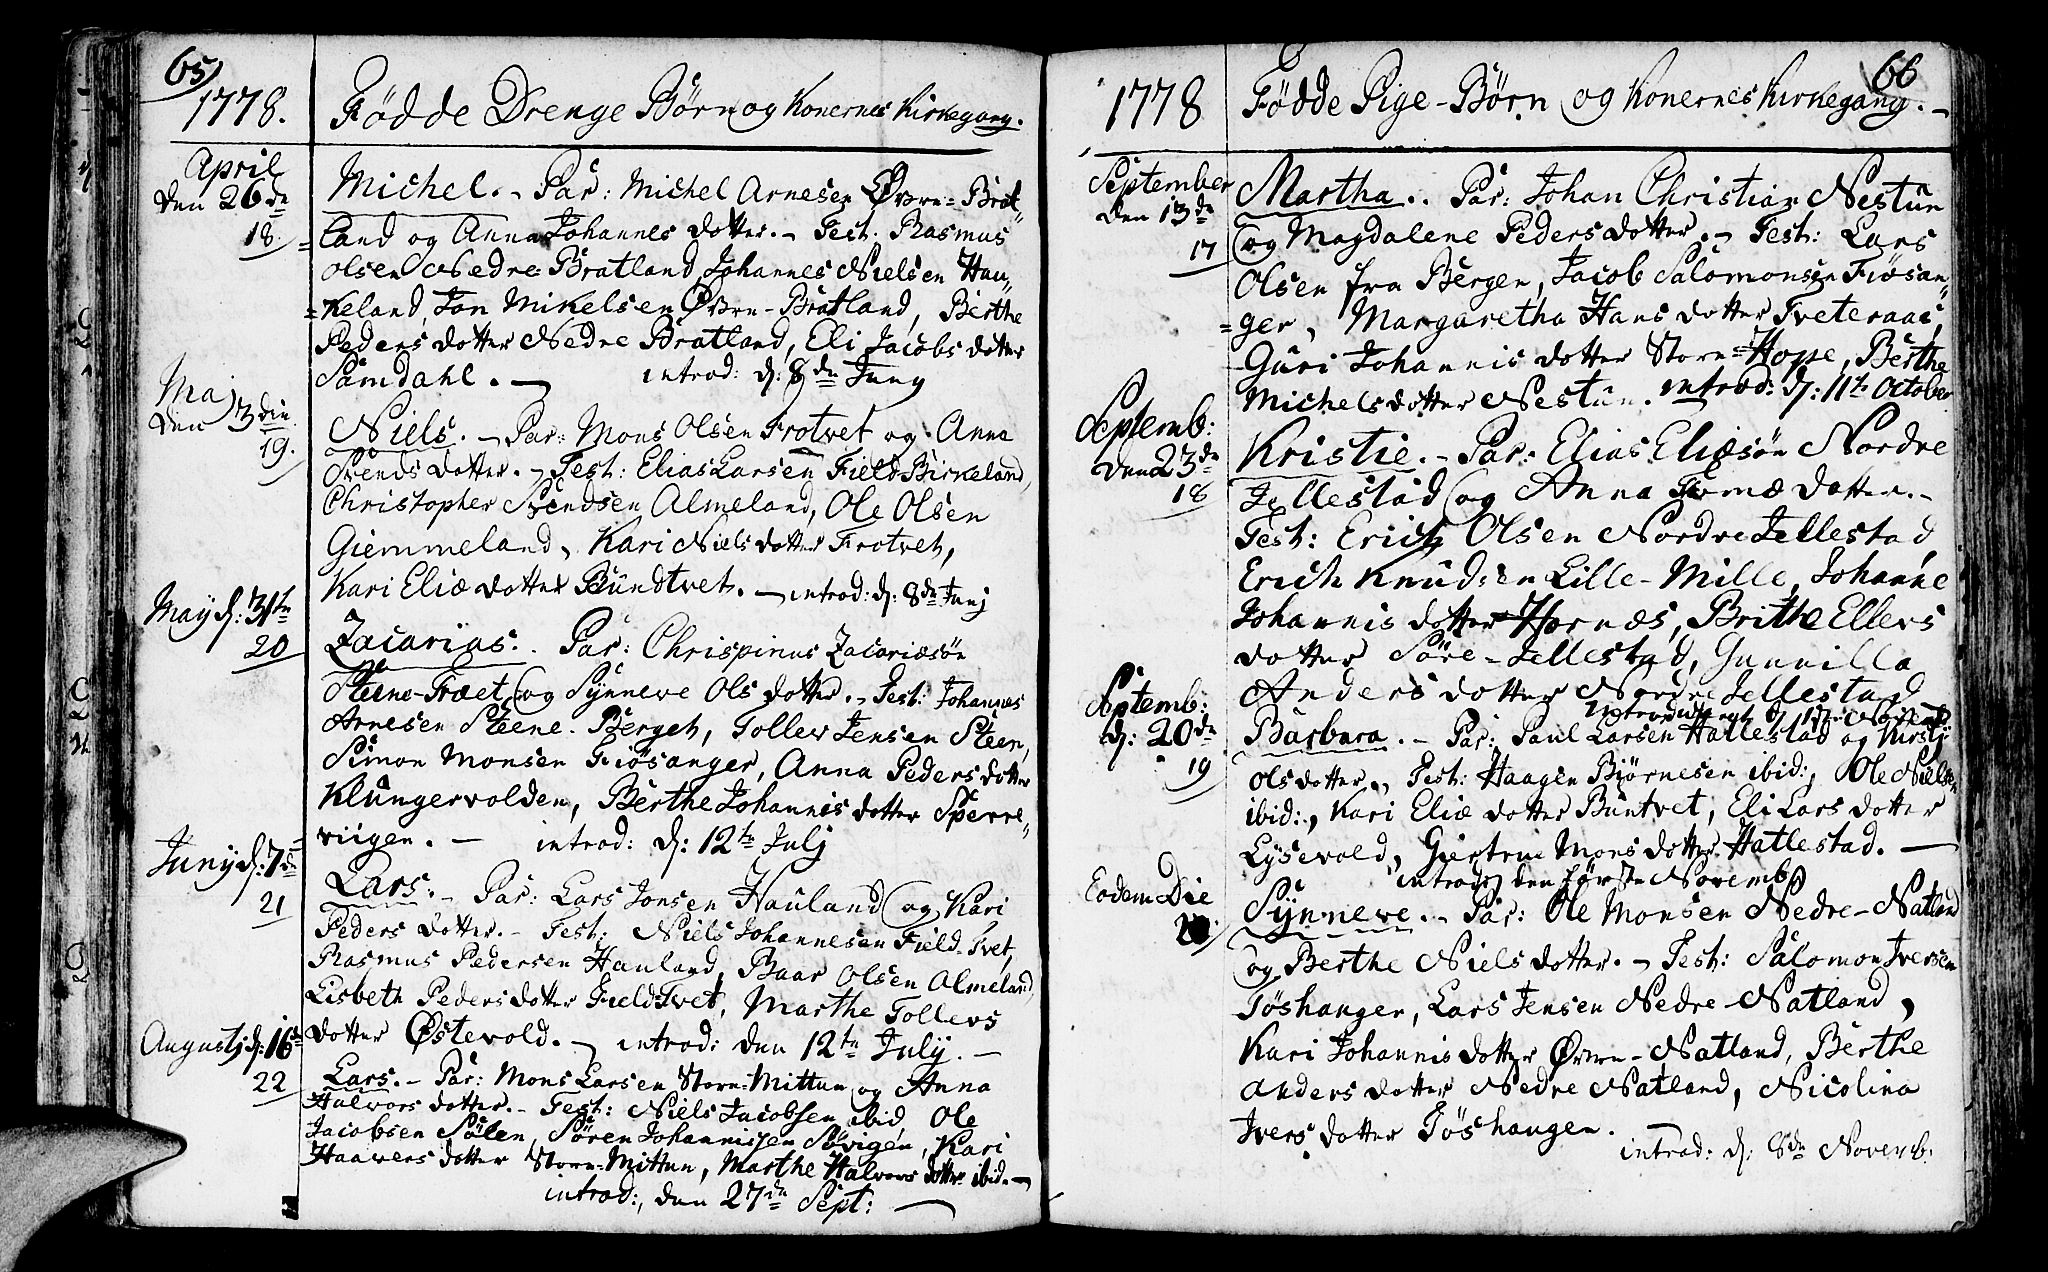 65
1778. Fødde Drenge Børn og Konernes Kirkegang.
April
den 26de
18.
Michel. - Par: Michel Arnesen Øvre= Brat„
=land og Anna Johannes dotter. - Test. Rasmus
Olsen Nedre=Bratland, Johannes Nielsen Hau„
=keland, Jon Mikelsen Øvre-Bratland, Berthe
Peders dotter Nedre Bratland, Eli Jacobs dotter
Samdahl. - introd: d: 8de Juny
Maj
den 3die
19.
Niels. - Par: Mons Olsen Frotvet og Anna
Svends dotter. - Test: Elias Larsen Field-Birkeland,
Christopher Svendsen Almeland, Ole Olsen
Giemmeland, Kari Niels dotter Frotvet,
Kari Eliæ dotter Bundtvet. - introd: d: 8de Junj
May d: 31te
20
Zacarias. Par: Chrispinus Zacariæsøn
Steene-Træet og Synneve Ols dotter. - Test: Johannes
Arnesen Steene-Berget, Tollev Jensen Steen,
Simon Monsen Fiøsanger, Anna Peders dotter
Klungervolden, Berthe Johannis dotter Sperre„
viigen. - introd: d: 12te Julj
Juny d: 7de
21
Lars. - Par: Lars Jonsen Hauland og Kari
Peders dotter. - Test: Niels Johannesen Field-Tvet,
Rasmus Pedersen Hauland, Baar Olsen Almeland,
Lisbeth Peders dotter Field-Tvet, Marthe Tollevs
dotter Østevold. - introd: den 12te July. -
Augustj d: 16de
22
Lars. - Par: Mons Larsen Store-Mittun og Anna
Halvors dotter. - Test: Niels Jacobsen ibid, Ole
Jacobsen Sølen, Søren Johannissen Sørvigen, Kari
Haavers dotter Store-Mittun, Marthe Halvors dotter ibid. -
introd:, den 27de Sept: -
66
1778 Fødde Pige-Børn og Konernes Kirkegang. -
September
den 13de
17
Martha.. Par: Johan Christian Nestun
og Magdalene Peders dotter. - Test: Lars
Olsen fra Bergen, Jacob Salomonsen Fiøsan„
=ger, Margaretha Hans dotter Tveteraas,
Guri Johannis dotter Store=Hope, Berthe
Michels dotter Nestun. introd: d: 11te October
Septemb:
den 23de
18
Kristie. - Par: Elias Eliæsøn Nordre
Jellestad og Anna dotter. -
Test: Erich Olsen Nordre Jellestad
Erich Knudsen Lille-Mille, Johanne
Johannis dotter Hornæs, Brithe Ellers
dotter Søre-Jellestad, Gunnilla
Anders dotter Nordre Jellestad
Septemb:
d: 20de
19
Barbara. - Par: Paul Larsen Hatlestad og Kirstj
Ols dotter. Test: Haagen Biørnesen ibid:, Ole Nielsen
ibid:, Kari Eliæ dotter Buntvet, Eli Lars dotter
Lysevold, Giertrue Mons dotter Hatlestad. -
introd: den første Novemb:
Eodem Die
20.
Synneve. - Par: Ole Monsen Nedre-Natland
og Berthe Niels dotter. - Test: Salomon Iversen
Tøshanger, Lars Jensen Nedre-Natland,
Kari Johannis dotter Øvre-Natland, Berthe
Anders dotter Nedre Natland, Nicolina
Ivers dotter Tøshangen.
introd: d: 8de Novemb: